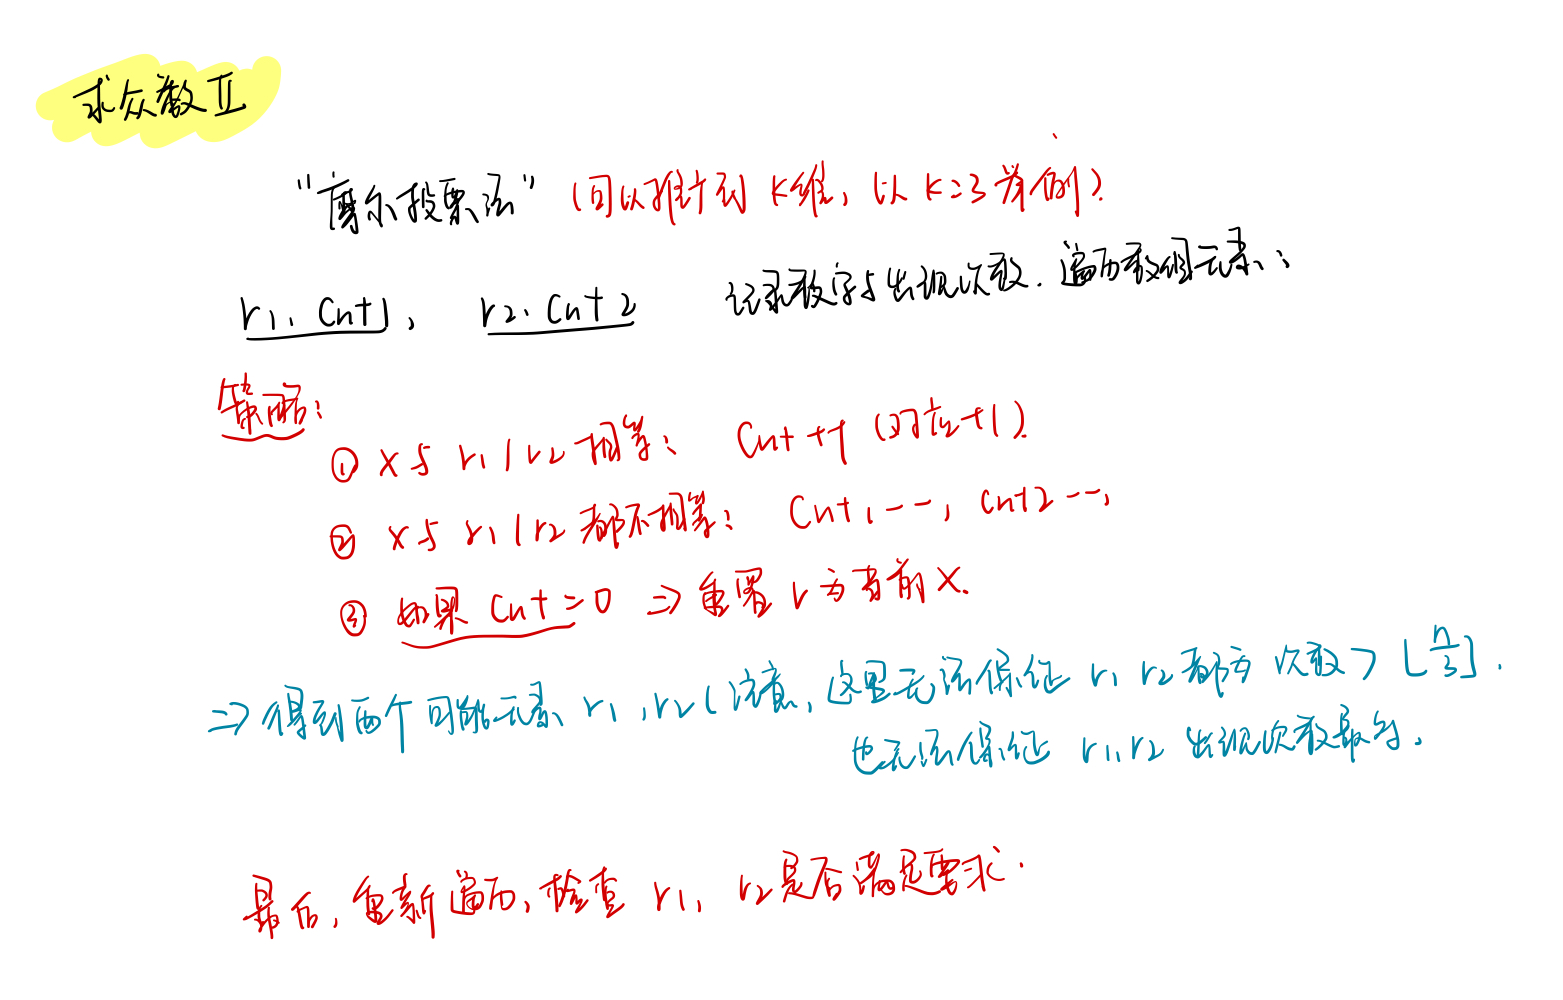 求众数 II
“摩尔投票法” (可以推广到 K维, 以 K=3 举例)
r1, Cnt1, r2, Cnt2 记录数字与出现次数. 遍历数组元素x:
策略:
① x与 r1/r2 相等: Cnt++ (对应+1).
② x与 r1/r2 都不相等: Cnt1--, Cnt2--,
③ 如果 Cnt=0 ⇒ 重置 r 为当前 x.
⇒ 得到两个可能元素 r1, r2 (注意, 这里无法保证 r1 r2 都为 次数 > ⌊n/3⌋.
也无法保证 r1, r2 出现次数最多.
最后, 重新遍历, 检查 r1, r2是否满足要求.